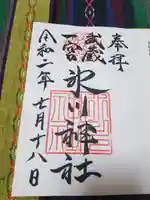 奉拝
武蔵
一宮
氷川神社
令和二年七月十八日